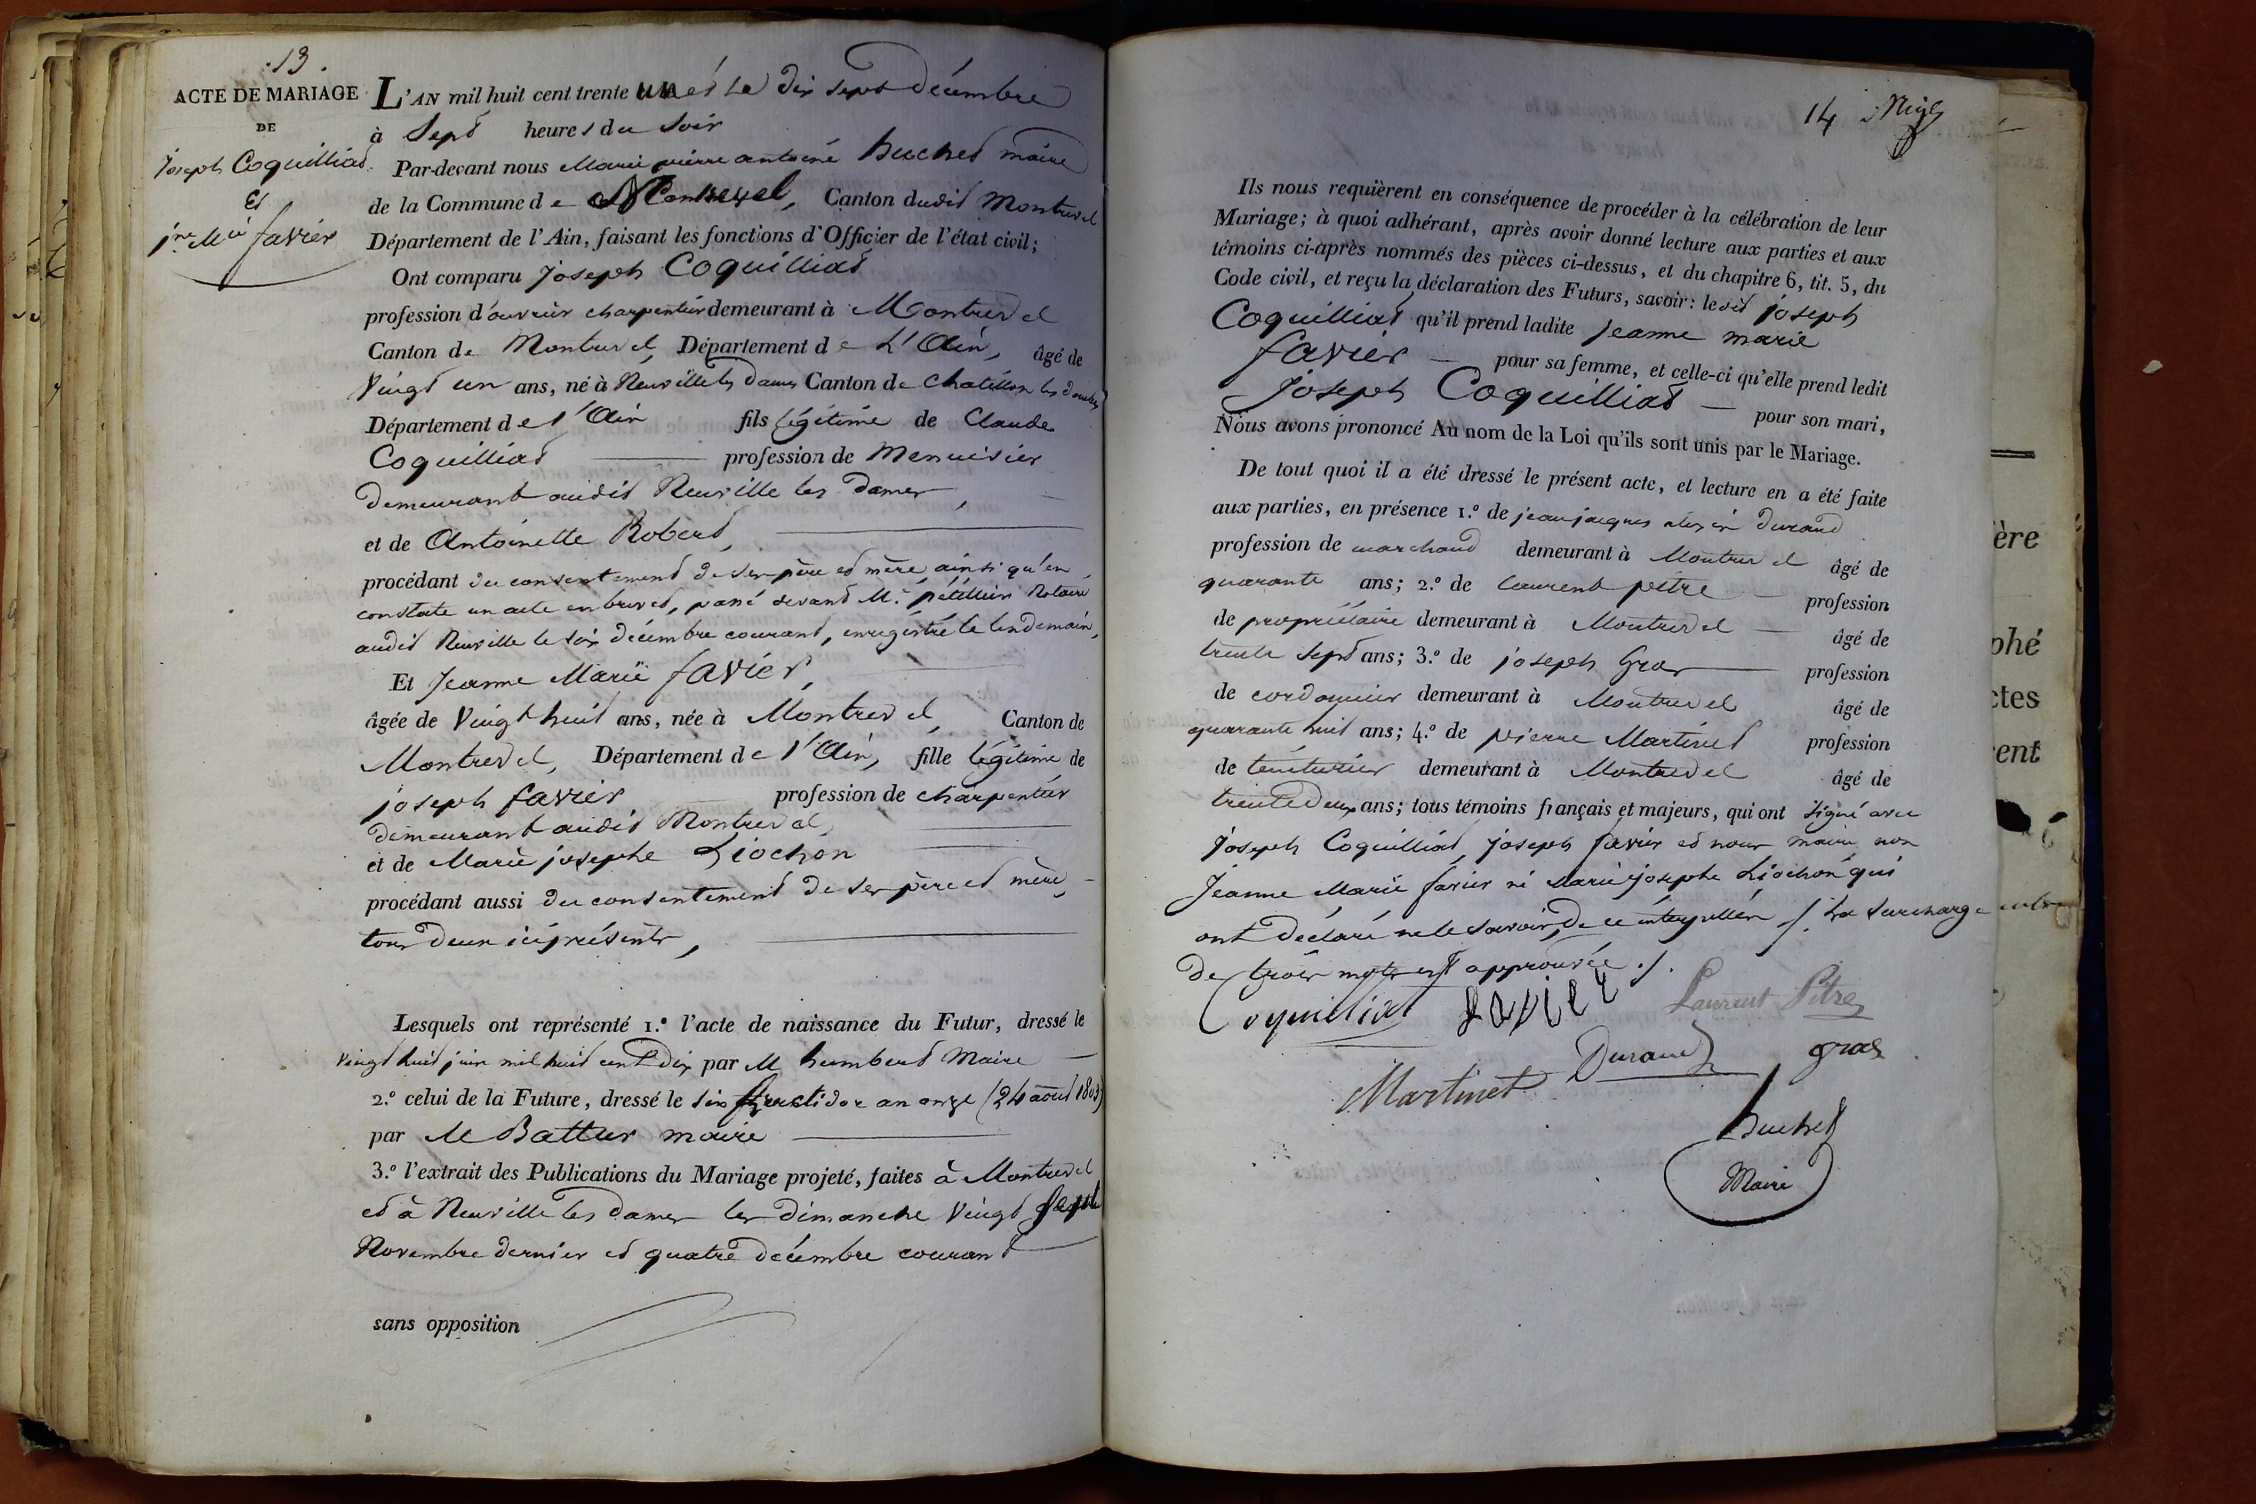 13
ACTE DE MARIAGE
DE
Joseph Coquilliat
Et
jne Mie favier
L'AN mil huit cent trente un et le dix sept décembre
à Sept heures du soir
Par-devant nous Marie pierre antoine buchet maire
de la Commune de Montrevel, Canton dudit Montrevel
Département de l'Ain, faisant les fonctions d'Officier de l'état civil;
Ont comparu joseph Coquilliat
profession d'ouvrier charpentier demeurant à Montrevel
Canton de Montrevel, Département de L'Ain, âgé de
Vingt un ans, né à Neuville les dames Canton de Chatillon les dombes
Département de l'Ain fils légitime de Claude
Coquilliat profession de Menuisier
demeurant audit Neuville les dames,
et de Antoinette Robert,
procédant du consentement de ses père et mère, ainsi qu'en
constate un acte en brevet, passé devant Me. pétellier Notaire
audit Neuville le six décembre courant, enregistré le lendemain,
Et Jeanne Marie favier,
âgée de Vingt huit ans, née à Montrevel, Canton de
Montrevel, Département de l'Ain, fille légitime de
joseph favier profession de charpentier
demeurant audit Montrevel,
et de Marie josephe Liochon
procédant aussi du consentement de ses père et mère,
tous deux ici présents,
Lesquels ont représenté 1.º l'acte de naissance du Futur, dressé le
vingt huit juin mil huit cent dix par M humbert Maire
2.º celui de la Future, dressé le six fructidor an onze (24 août 1803)
par M Battur maire
3.º l'extrait des Publications du Mariage projeté, faites à Montrevel
et à Neuville les dames les dimanche vingt sept
Novembre dernier et quatre décembre courant
sans opposition
14
Ils nous requièrent en conséquence de procéder à la célébration de leur
Mariage; à quoi adhérant, après avoir donné lecture aux parties et aux
témoins ci-après nommés des pièces ci-dessus, et du chapitre 6, tit. 5, du
Code civil, et reçu la déclaration des Futurs, savoir: ledit joseph
Coquilliat qu'il prend ladite Jeanne marie
favier pour sa femme, et celle-ci qu'elle prend ledit
Joseph Coquilliat pour son mari,
Nous avons prononcé Au nom de la Loi qu'ils sont unis par le Mariage.
De tout quoi il a été dressé le présent acte, et lecture en a été faite
aux parties, en présence 1.º de jean jacques alexis durand
profession de marchand demeurant à Montrevel âgé de
quarante ans; 2.º de laurent pitre profession
de propriétaire demeurant à Montrevel âgé de
trente sept ans; 3.º de joseph Gras profession
de cordonnier demeurant à Montrevel âgé de
quarante huit ans; 4.º de pierre Martinet profession
de teinturier demeurant à Montrevel âgé de
trente deux ans; tous témoins français et majeurs, qui ont signé avec
joseph Coquilliat, joseph favier et nous maire, non
Jeanne Marie favier ni Marie josephe Liochon qui
ont déclaré ne le savoir, de ce interpellées ./. La surcharge
de trois mots est approuvée ./.
Coquilliat favier Laurent Pitre
Durand gras
Martinet
Buchet
Maire
ère
phé
ctes
ent